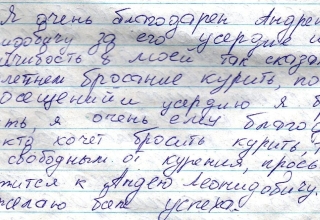 Я очень благодарен Андрею
идовичу за его усердие и
йчивость в моей так сказа
летнем бросание курить, по
осещений и усердию я б
ть, я очень ему благод
кто хочет бросить курить,
свободным от курения, прось
жится к Андею Леонидовичу.
желаю вам успеха.